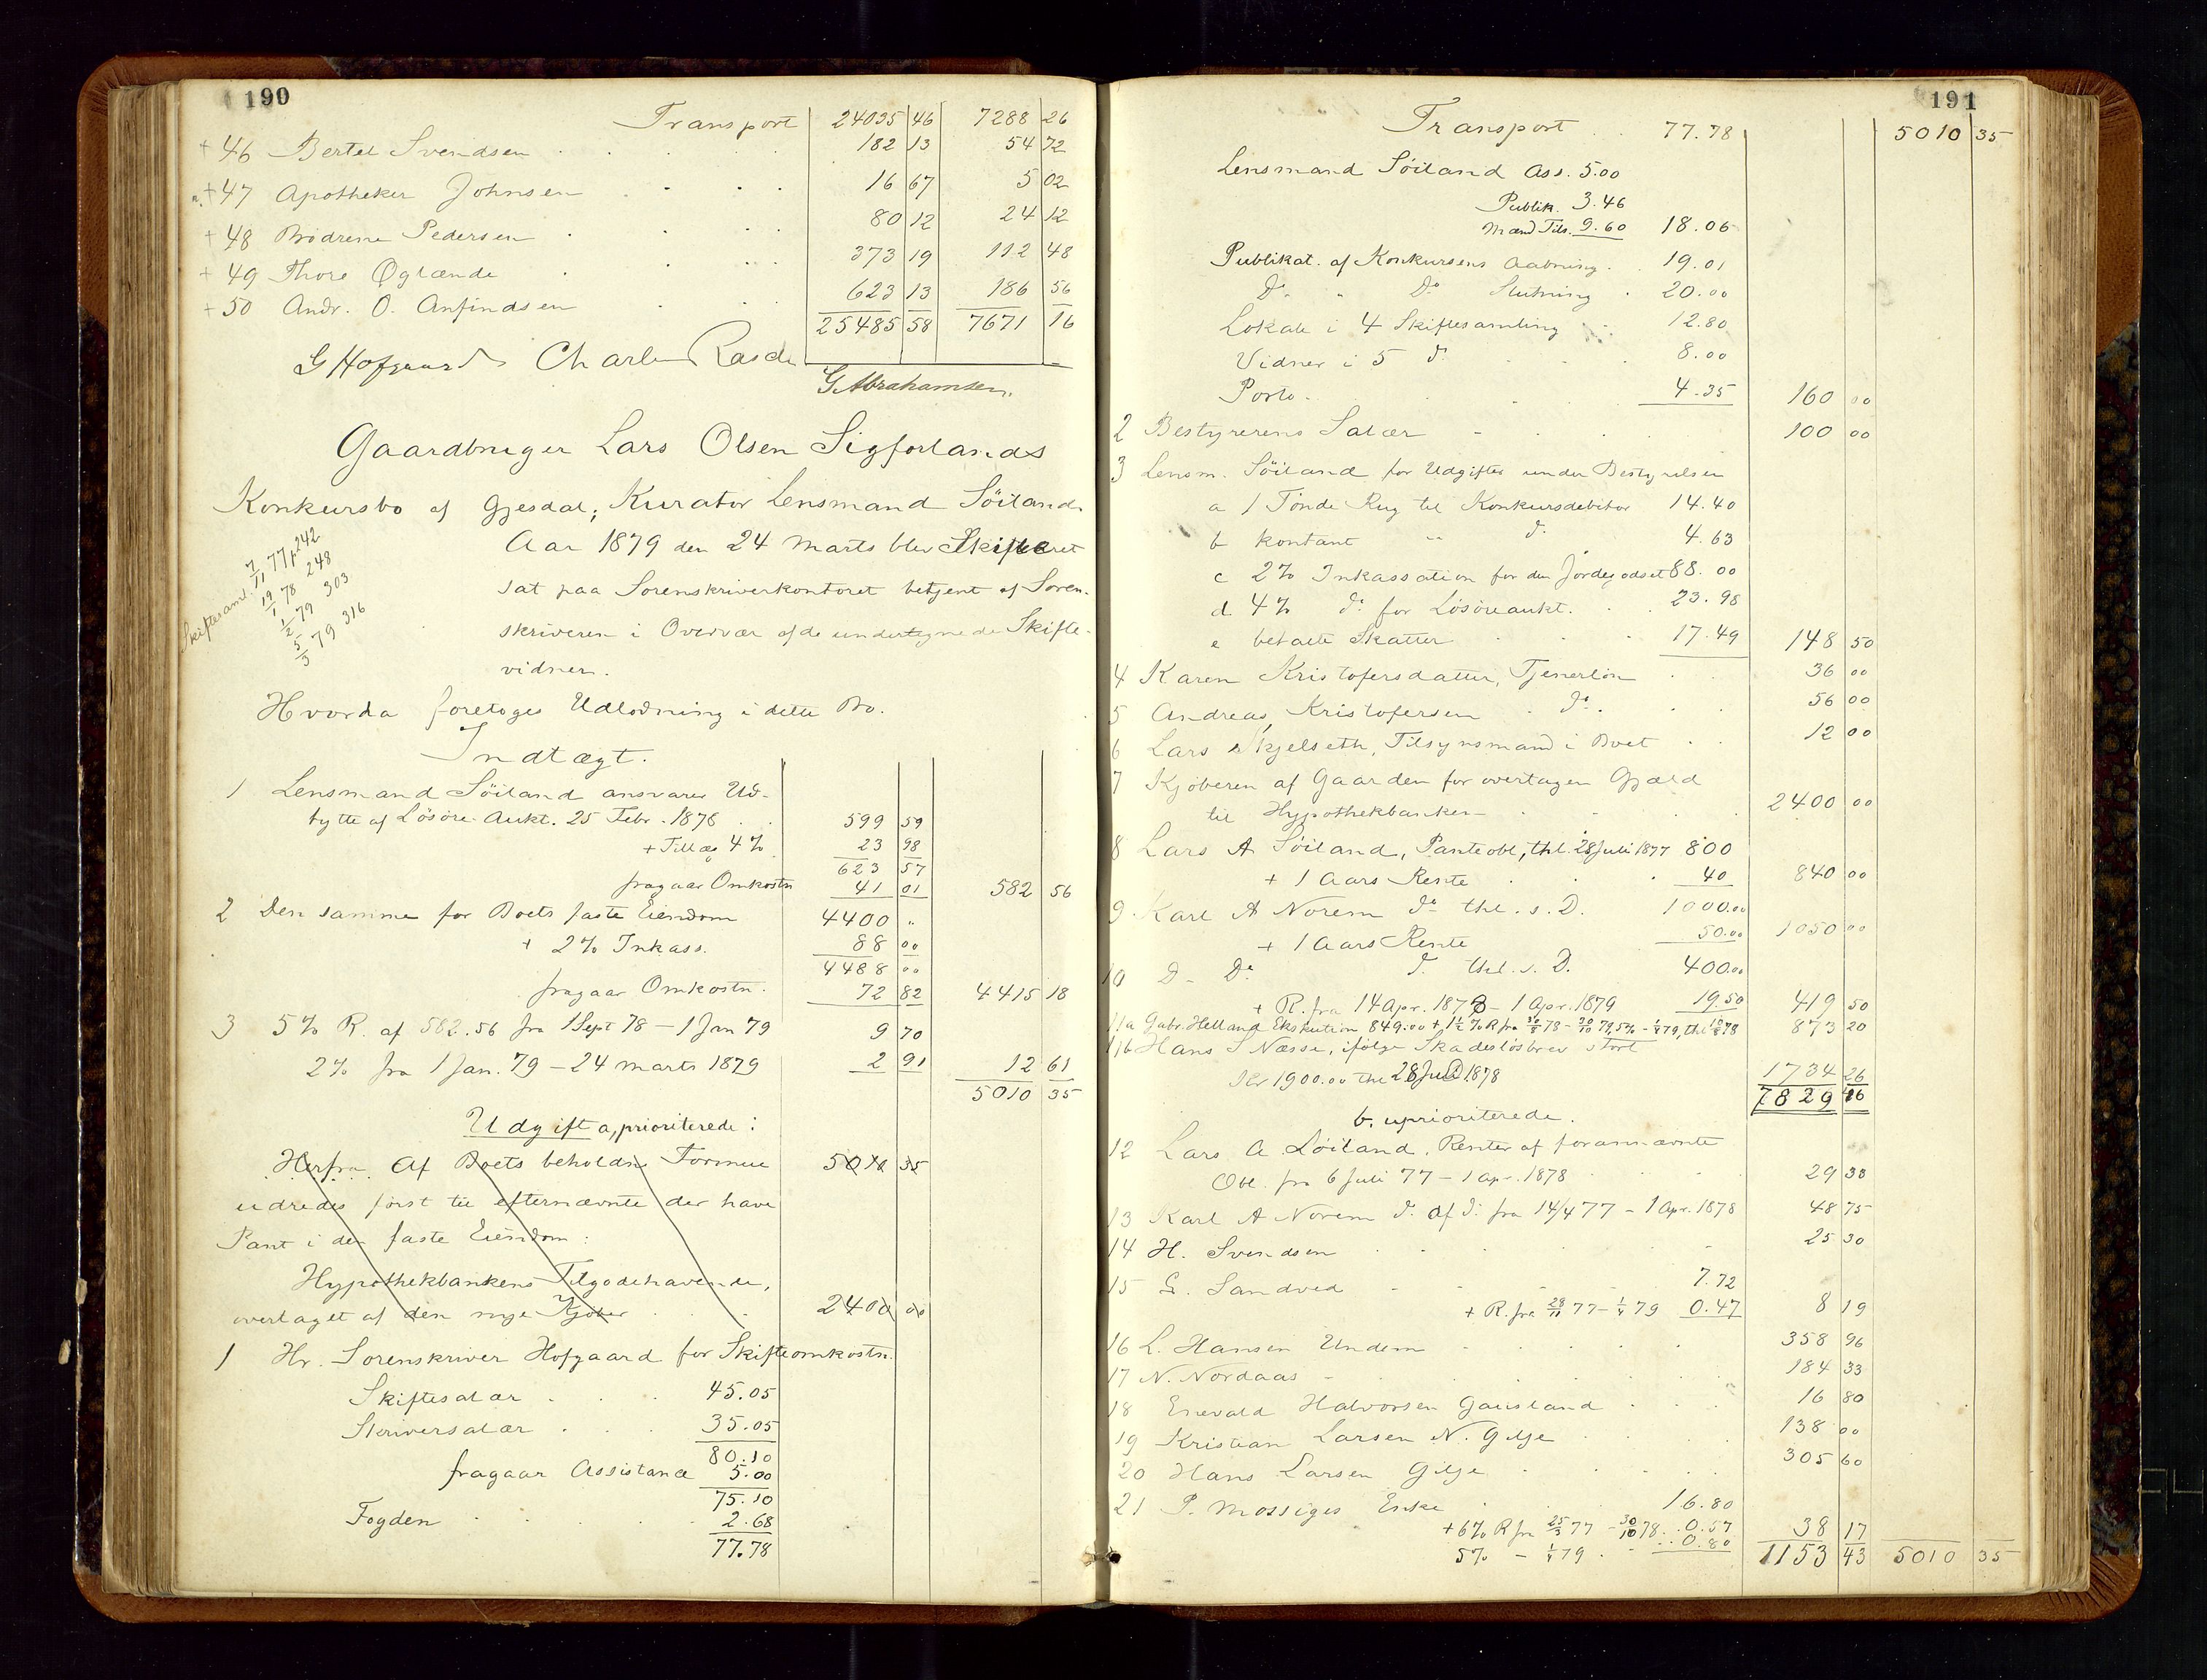 190
Transport 24095 46 7288 26
+ 46 Bertel Svendsen 182 13 54 72
+ 47 Apotheker Johnsen 16 67 5 02
+ 48 Brødrene Pedersen 80 12 24 12
+ 49 Thore Øglænde 373 19 112 48
+ 50 Andr. O. Anfindsen 623 13 186 56
25485 58 7671 16
G Hofgaard Charles
G Abrahamsen
Gaardbruger Lars Olsen Sigforlands
Konkursbo af Gjesdal; Kurator Lensmand Söiland.
Skiftesaml. 7/11 77 p 242
19/1 78 248
1/2 79 303
5/3 79 316
Aar 1879 den 24 Marts blev Skifteret
sat paa Sorenskriverkontoret betjent af Soren-
skriveren i Overvær af de undertegnede Skifte-
vidner.
Hvorda foretoges Udlodning i dette Bo.
Indtægt.
1 Lensmand Söiland ansvarer Ud-
bytte af Lösöre Aukt. 25 Febr. 1878 599 59
+ Tillæg 4% 23 98
623 57
fragaar Omkostn 41 01 582 56
2 Den samme for Boets faste Eiendom 4400 "
+ 2% Inkass. 88 00
4488 00
fragaar Omkostn. 72 82 4415 18
3 5% R. af 582.56 fra 1 Sept 78 - 1 Jan 79 9 70
2% fra 1 Jan. 79 - 24 Marts 1879 2 91 12 61
5010 35
Udgift a, prioriterede:
Herfra Af Boets beholdne Formue 5010 35
udredes först til efternævnte der have
Pant i den faste Eiendom:
Hypothekbankens Tilgodehavende,
overtaget af den nye Kjøber 2400 00
1 Hr. Sorenskriver Hofgaard for Skifteomkostn.
Skiftesalær 45.05
Skriversalær 35.05
80.10
fragaar Assistance 5.00
75.10
Fogden 2.68
77.78
191
Transport 77.78 5010 35
Lensmand Söiland Ass. 5.00
Publik. 3.46
Mænd Tils. 9.60 18.06
Publikat. af Konkursens Aabning 19.01
Do " Do Slutning 20.00
Lokale i 4 Skiftesamling 12.80
Vidner i 5 do 8.00
Porto 4.35 160 00
2 Bestyrerens Salær 100 00
3 Lensm. Söiland for Udgifter under Bestyrelsen
a 1 Tönde Rug til Konkursdebitor 14.40
b kontant " do 4.63
c 2% Inkassation for den Jordegodset 88.00
d 4% do for Lösöreaukt. 23.98
e betalte Skatter 17.49 148 50
4 Karen Kristofersdatter, Tjenerlön 36 00
5 Andreas Kristofersen do 56 00
6 Lars Skjelseth, Tilsynsmand i Boet 12 00
7 Kjöberen af Gaarden for overtagen Gjæld
til Hypothekbanken 2400 00
8 Lars A Söiland, Panteobl, thl. 28 Juli 1877 800
+ 1 Aars Rente 40 840 00
9 Karl A Norem do thl. s. D. 1000.00
+ 1 Aars Rente 50.00 1050 00
10 D- Do do thl. s. D. 400.00
+ R. fra 14 Apr. 1878 - 1 Apr. 1879 19.50 419 50
11a Gabr. Helland Exekution 849.00 873 20
11b Hans S Næsse, ifölge Skadeslösbrev stort
1900.00 thl 28 1878 1734 26
7829 46
b. uprioriterede.
12 Lars A Söiland, Renter af forannævnte
Obl. fra 6 Juli 77 - 1 apr. 1878 29 33
13 Karl A Norem do af do fra 14/4 77 - 1 Apr. 1878 48 75
14 H. Svendsen 25 30
15 G. Sandved 7.72
+ R. fra 29/11 77 - 1/4 79 0.47 8 19
16 L. Hansen Undem 358 96
17 N. Nordaas 184 33
18 Enevald Halvorsen Gausland 16 80
19 Kristian Larsen N. Gilje 138 00
20 Hans Larsen Gilje 305 60
21 P. Mossiges Enke 16.80
+ 6% R fra 25/3 77 - 30/10 78 0.57
5% - 1/4 79 0.80 38 17
1153 43 5010 35